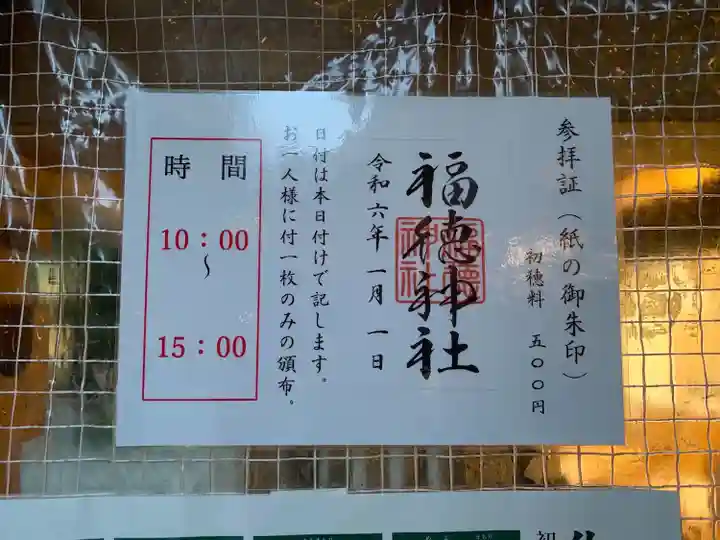 参拝証（紙の御朱印）
初穂料　五〇〇円
福徳神社
令和六年一月一日
日付は本日付けで記します。
お一人様に付一枚のみの頒布。
時間
10：00
〜
15：00